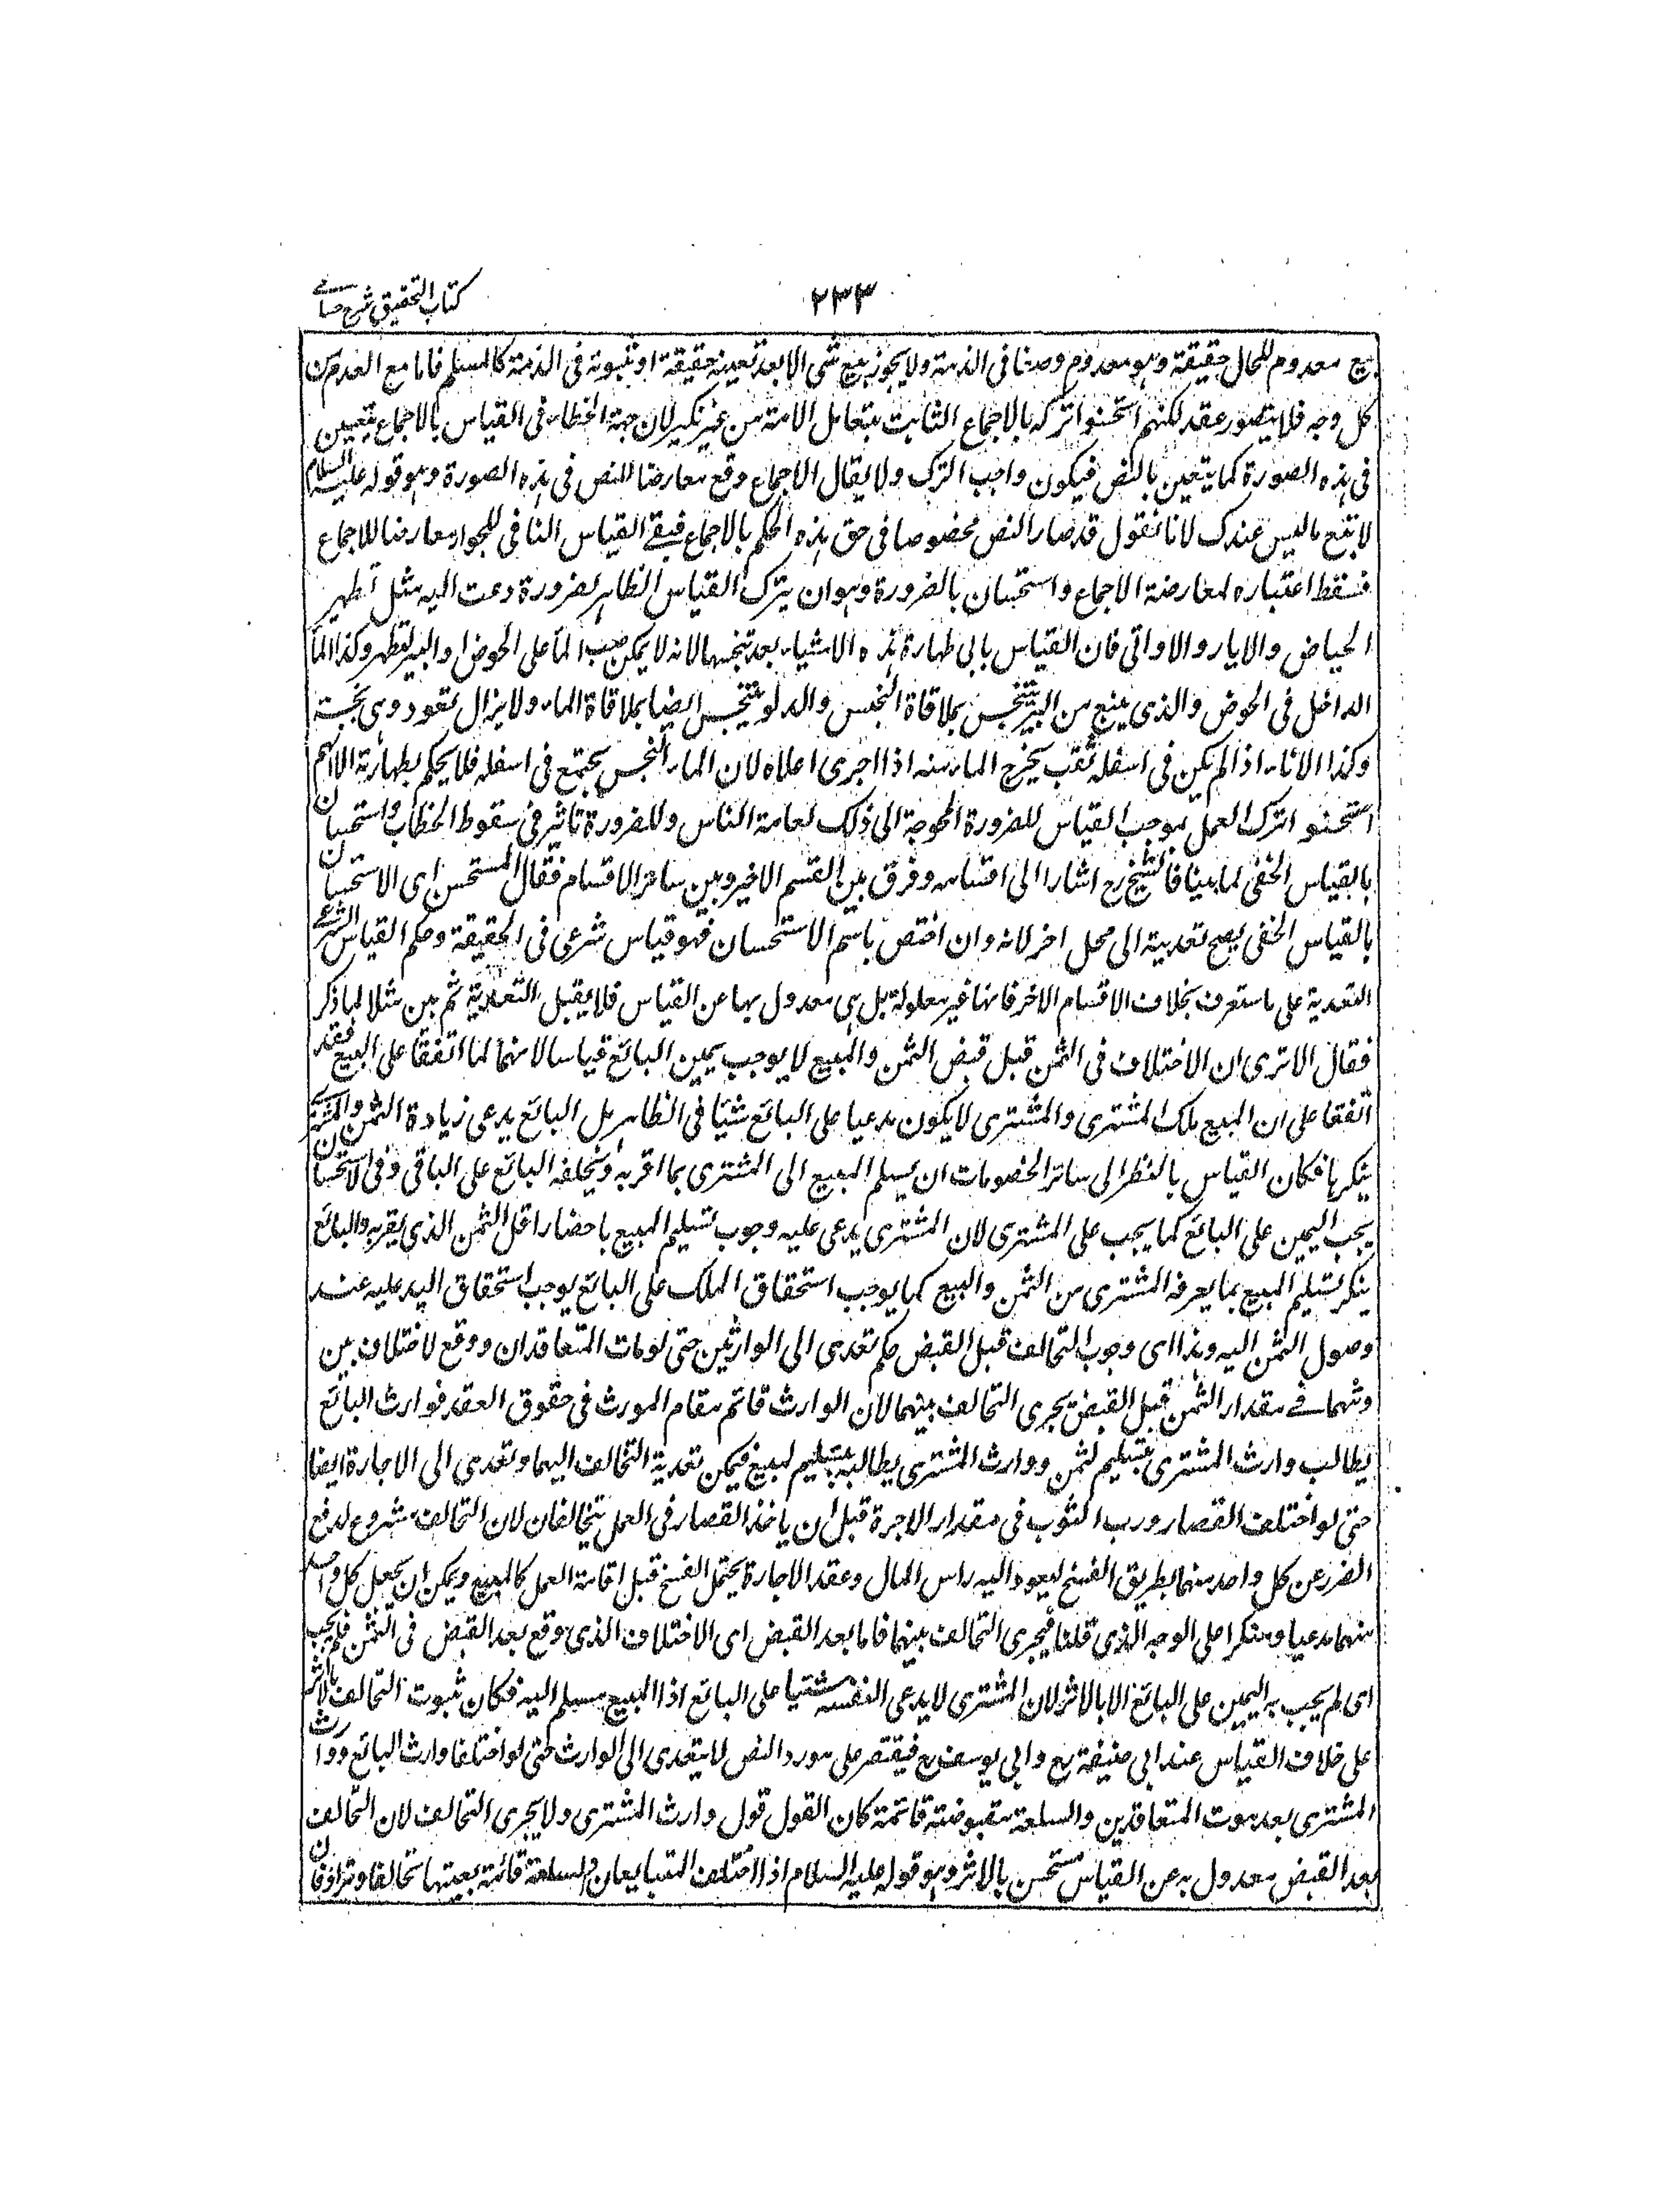 كتاب التحقيق شرح حسامى
٢٣٣
بيع معدوم للحال حقيقة وهو معدوم وصفا فى الذمة ولا يجوز بيع شئ الا بعد تعينه حقيقة او ثبوته فى الذمة كالسلم فاما مع العدم من
كل وجه فلا يتصور عقد لكنهم استحسنوا تركه بالاجماع الثابت بتعامل الامة من غير نكير لان جهة الخطاء فى القياس بالاجماع يتعين
فى هذه الصورة كما يتعين بالنص فيكون واجب الترك ولا يقال الاجماع وقع معارضا للنص فى هذه الصورة وهو قوله عليه السلام
لا تبع ما ليس عندك لانا نقول قد صار النص مخصوصا فى حق هذه الحكم بالاجماع فبقى القياس النافى للجواز معارضا للاجماع
فسقط اعتباره لمعارضة الاجماع واستحسان بالضرورة وهو ان يترك القياس الظاهر لضرورة دعت اليه مثل تطهير
الحياض والابار والاوانى فان القياس يابى طهارة هذه الاشياء بعد تنجسها لانه لا يمكن صب الماء على الحوض او البير ليطهر وكذا الماء
الداخل فى الحوض والذى ينبع من البير يتنجس بملاقاة النجس والدلو يتنجس ايضا بملاقاة الماء ولا يزال تعود وهى نجسة
وكذا الاناء اذا لم يكن فى اسفله ثقب يخرج الماء منه اذا اجرى اعلاه لان الماء النجس يجتمع فى اسفله فلا يحكم بطهارته الا انهم
استحسنوا ترك العمل بموجب القياس للضرورة المحوجة الى ذلك لعامة الناس وللضرورة تاثير فى سقوط الخطاب واستحسان
بالقياس الخفى لما بينا فالشيخ رح اشار الى اقسامه وفرق بين القسم الاخير وبين سائر الاقسام فقال المستحسن اى الاستحسان
بالقياس الخفى يصح تعديته الى محل اخر لانه وان اختص باسم الاستحسان فهو قياس شرعى فى الحقيقة وحكم القياس الشرعى
التعدية على ما ستعرف بخلاف الاقسام الاخر فانها غير معلولة بل هى معدول بها عن القياس فلا يقبل التعدية ثم بين مثلا لما ذكر
فقال الا ترى ان الاختلاف فى الثمن قبل قبض الثمن والمبيع لا يوجب يمين البائع قياسا لانهما لما اتفقا على البيع فقد
اتفقا على ان المبيع ملك المشترى والمشترى لا يكون مدعيا على البائع شيئا فى الظاهر بل البائع يدعى زيادة الثمن والمشترى
ينكرها فكان القياس بالنظر الى سائر الخصومات ان يسلم المبيع الى المشترى بما اقر به ويحلفه البائع على الباقى وفى الاستحسان
يجب اليمين على البائع كما يجب على المشترى لان المشترى يدعى عليه وجوب تسليم المبيع باحضار اقل الثمن الذى يقر به والبائع
ينكر تسليم المبيع بما يعرفه المشترى من الثمن والبيع كما يوجب استحقاق الملك على البائع يوجب استحقاق اليد عليه عند
وصول الثمن اليه وهذا اى وجوب التحالف قبل القبض حكم تعدى الى الوارثين حتى لو مات المتعاقدان ووقع الاختلاف بين
ورثتهما فى مقدار الثمن قبل القبض يجرى التحالف بينهما لان الوارث قائم مقام المورث فى حقوق العقد فوارث البائع
يطالب وارث المشترى بتسليم الثمن ووارث المشترى يطالبه بتسليم المبيع فيمكن تعدية التحالف اليهما وتعدى الى الاجارة ايضا
حتى لو اختلف القصار ورب الثوب فى مقدار الاجرة قبل ان ياخذ القصار فى العمل يتحالفان لان التحالف مشروع لدفع
الضرر عن كل واحد منهما بطريق الفسخ ليعود اليه راس المال وعقد الاجارة يحتمل الفسخ قبل اقامة العمل كالبيع ويمكن ان يجعل كل واحد
منهما مدعيا ومنكرا على الوجه الذى قلنا فيجرى التحالف بينهما فاما بعد القبض اى الاختلاف الذى وقع بعد القبض فى الثمن فلم يجب
اى لم يجب به اليمين على البائع الا بالاثر لان المشترى لا يدعى لنفسه شيئا على البائع اذا المبيع مسلم اليه فكان ثبوت التحالف بالاثر
على خلاف القياس عند ابى حنيفة رح وابى يوسف رح فيقتصر على مورد النص لا يتعدى الى الوارث حتى لو اختلفا وارث البائع ووارث
المشترى بعد موت المتعاقدين والسلعة مقبوضة قائمة كان القول قول وارث المشترى ولا يجرى التحالف لان التحالف
بعد القبض معدول به عن القياس مستحسن بالاثر وهو قوله عليه السلام اذا اختلف المتبايعان والسلعة قائمة بعينها تحالفا وترادا فان